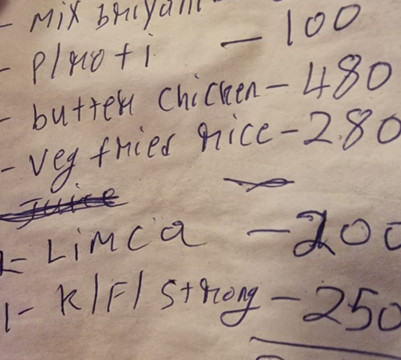 - Mix briyani
- P/roti - 100
- butter chicken - 480
- Veg fried rice - 280
Juice
1- Limca - 200
1- K/F/Strong - 250